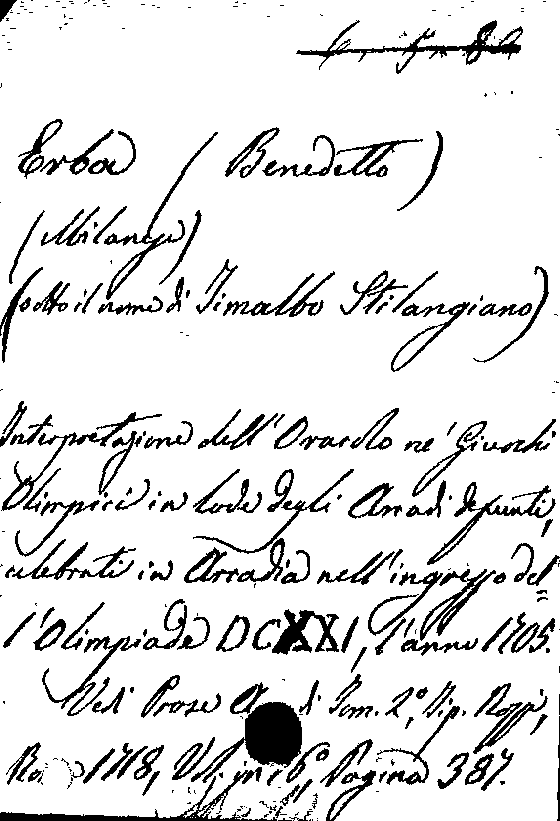 6. 5. 80
Erba (Benedetto)
(Milanese)
(sotto il nome di Timalbo Stilangiano)
Interpretazione dell'Oracolo ne' Giuochi
Olimpici in lode degli Arcadi defunti,
celebrati in Arcadia nell'ingresso del=
l'Olimpiade DCXXI, l'anno 1705.
Vedi Prose di Tom. 2°, Tip. Rossi,
1718, Vol. in 16°, Pagina 387.